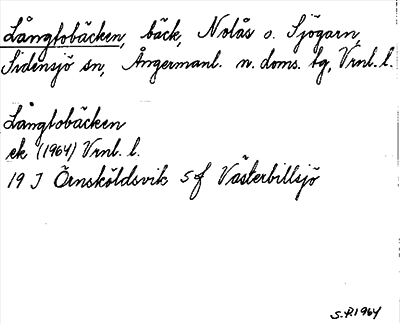 Långtobäcken, bäck, Nolås o. Sjögarn,
Sidensjö sn, Ångermanl. n. doms. tg, Vrnl. l.
Långtobäcken
ek (1964) Vrnl. l.
19 J Örnsköldsvik 5 f Västerbillsjö
S.P. 1964